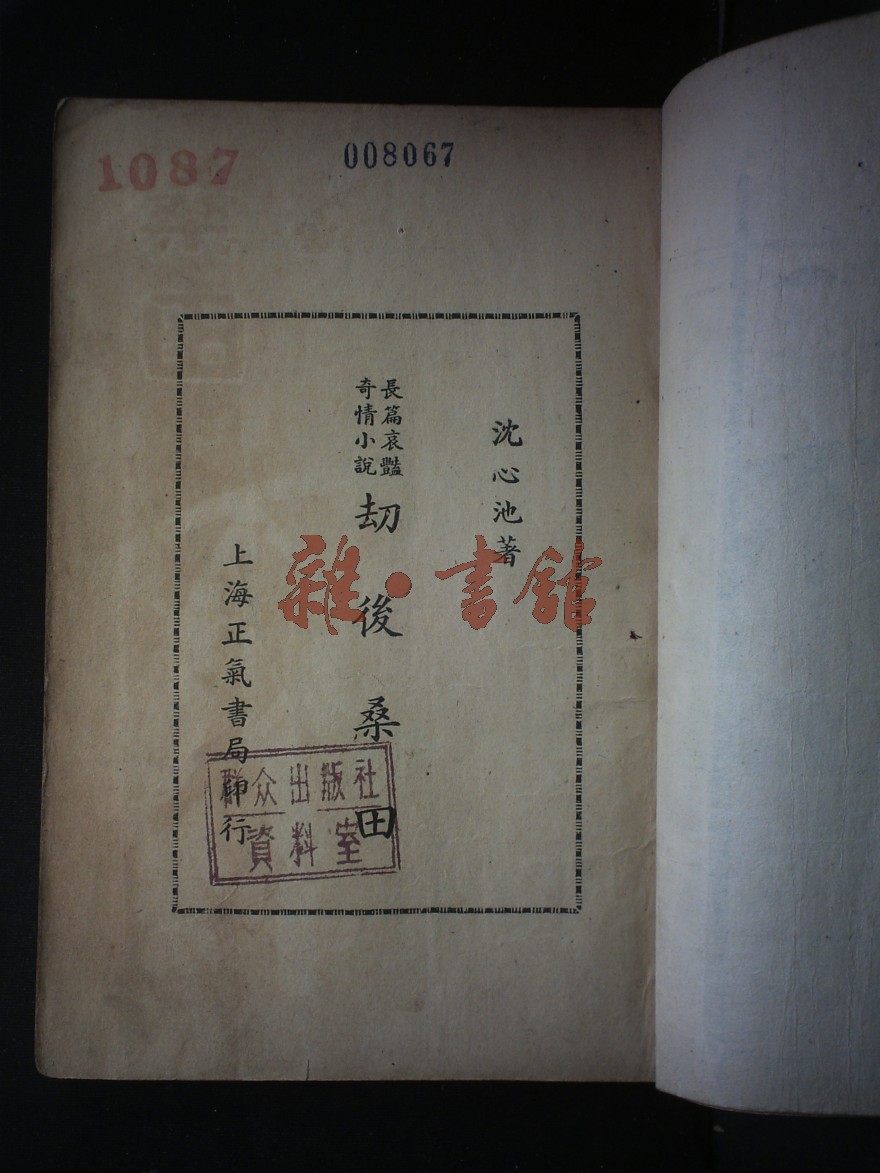 1087
008067
沈心池著
長篇哀豔
奇情小說
刧後桑田
上海正氣書局印行
雜·書舘
群众出版社
資料室